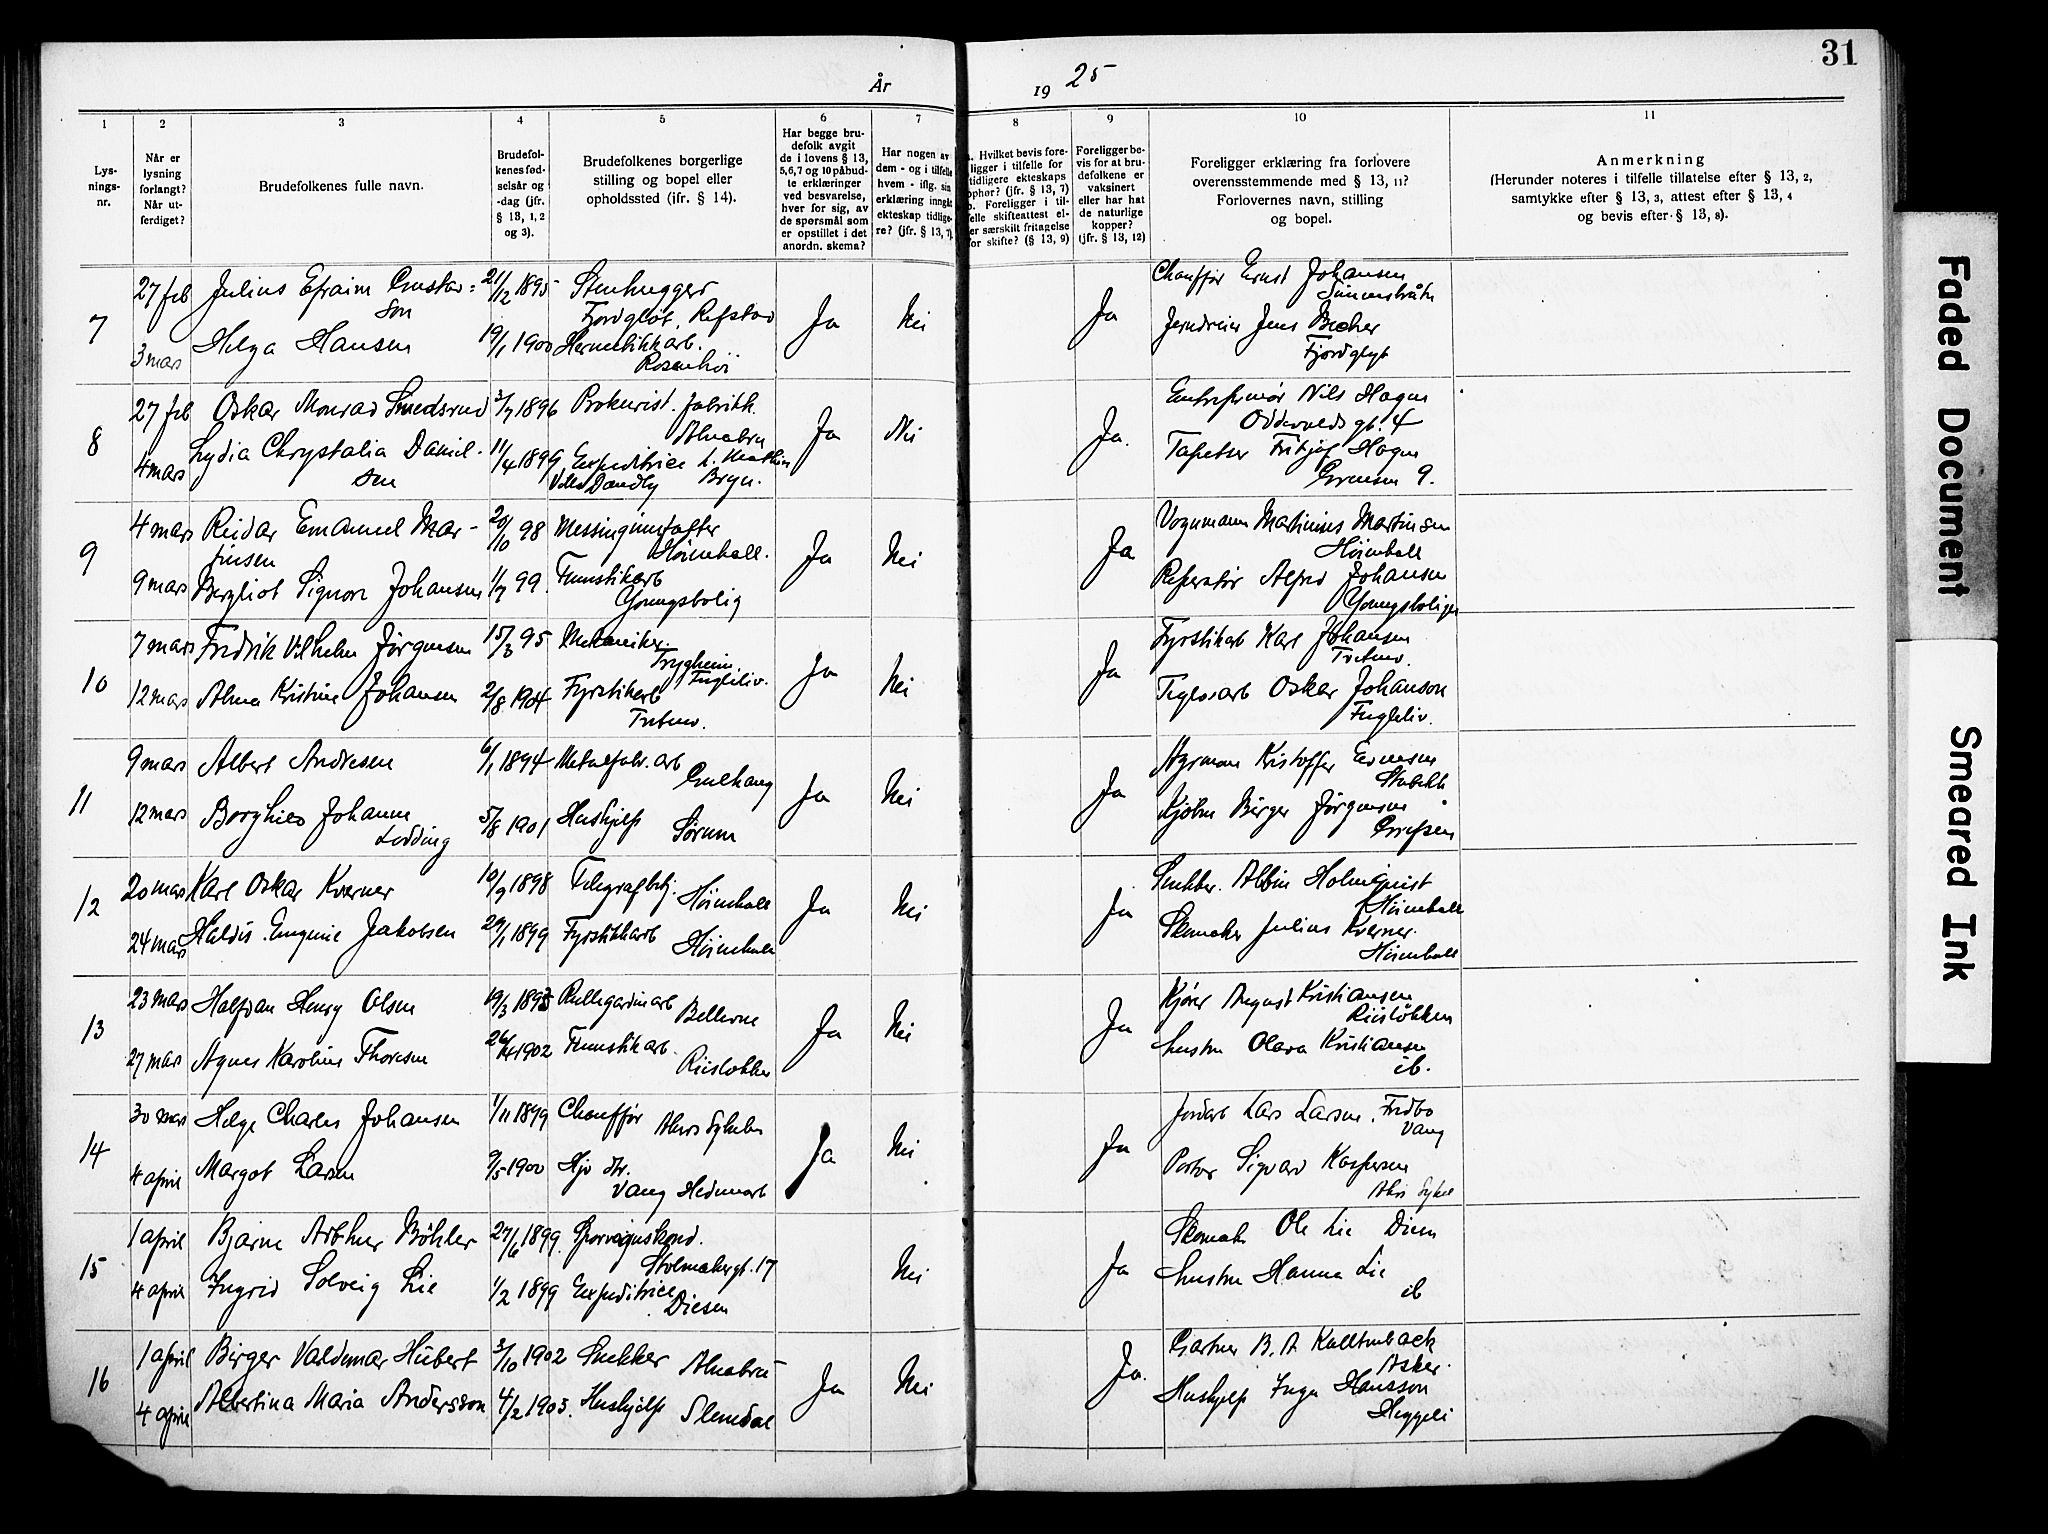 31
År 1925
1
2
3
4
5
6
7
8
9
10
11
Lys-
nings-
nr.
Når er
lysning
forlangt?
Når ut-
ferdiget?
Brudefolkenes fulle navn.
Brudefol-
kenes fød-
selsår og
-dag (jfr.
§ 13, 1, 2
og 3).
Brudefolkenes borgerlige
stilling og bopel eller
opholdssted (jfr. § 14).
Har begge bru-
defolk avgit
de i lovens § 13,
5, 6, 7 og 10 påbud-
te erklæringer
ved besvarelse,
hver for sig, av
de spørsmål som
er opstillet i det
anordn. skema?
Har nogen av
dem - og i tilfelle
hvem - iflg. sin
erklæring inngåt
ekteskap tidlige-
re? (jfr. § 13, 7).
a. Hvilket bevis fore-
ligger i tilfelle for
tidligere ekteskaps
ophør? (jfr. § 13, 7)
b. Foreligger i til-
felle skifteattest el-
ler særskilt fritagelse
for skifte? (§ 13, 9)
Foreligger be-
vis for at bru-
defolkene er
vaksinert
eller har hat
de naturlige
kopper?
(jfr. § 13, 12)
Foreligger erklæring fra forlovere
overensstemmende med § 13, 11?
Forlovernes navn, stilling
og bopel.
Anmerkning
(Herunder noteres i tilfelle tillatelse efter § 13, 2,
samtykke efter § 13, 3, attest efter § 13, 4
og bevis efter § 13, 8).
7
27 feb
3 mars
Julius Efraim Gustav-
son
Helga Hansen
21/12 1895
19/1 1900
Stenhugger
Fjordgløt, Refstad
Hermetikkarb.
Rosenhöi
Ja
Nei
Ja
Chauffør Ernst Johansen
Jens
Fjordgløt
8
27 feb
4 mars
Oskar Monrad Smedsrud
Lydia Chrystalia Daniel-
sen
3/7 1896
11/4 1899
Prokurist. fabrikk.
Alnabru
Expeditrice
Villa Bryn.
Ja
Nei
Ja.
Entreprenør Nils Hagen
Oddevaldsgt. 4
Tapetser Fritjof Hagen
Grensen 9.
9
4 mars
9 mars
Reidar Emanuel Mar-
tinsen
Bergliot Signora Johansen
20/10 98
1/7 99
Høienhall.
Youngsbolig
Ja
Nei
Ja
Vognmann Martinius Martinsen
Høienhall
Reperatør Alfred Johansen
Youngsboliger
10
7 mars
12 mars
Fredrik Vilhelm Jörgensen
Alma Kristine Johansen
15/3 95
2/8 1904
Mekaniker
Trygheim
Fugleliv.
Fyrstikarb
Ja
Nei
Ja
Fyrstikarb Karl Johansen
Teglv.arb Oskar Johanson
Fugleliv.
11
9 mars
12 mars
Albert Andresen
Borghild Johanne
Lodding
6/1 1894
5/8 1901
Metalfabr. arb
Gulhaug
Hushjelp
Sørum
Ja
Nei
Ja
Kristoffer Evensen
Stabekk
Birger Jørgensen
Grefsen
12
20 mars
24 mars
Karl Oskar Kverner
Haldis Eugenie Jakobsen
10/9 1898
29/1 1899
Telegrafbtj.
Høienhall
Fyrstikkarb
Høienhall
Ja
Nei
Ja
Snekker. Albin Holmquist
Høienhall
Skomaker Julius Kverner.
Høienhall
13
23 mars
27 mars
Halfdan Henry Olsen
Agnes Karoline Thoresen
19/3
26/4 1902
Rullegardinarb
Bellevue
Risløkka
Ja
Nei
Ja
Kjører August Kristiansen
Risløkken
hustru Olava Kristiansen
ib.
14
30 mars
4 april
Helge Charles Johansen
Margot Larsen
1/11 1899
9/5 1900
Chauffør
Akers Sykehus
Vang Hedemark
Ja
Nei
Ja
Jordarb Lars Larsen. Fredbo
Vang
Portør Sigvard Kaspersen
Akers Sykeh
15
1 april
4 april
Bjarne Arthur Böhler
Ingrid Solveig Lie
27/6 1899.
1/2 1899
Sporveiskond.
Stolmakergt. 17
Expeditrice
Disen
Nei
Ja
Skomak Ole Lie Disen
hustru Hanna Lie
ib
16
1 april
4 april
Birger Valdemar Hübert
Albertina Maria Andersson
3/10 1902
4/2 1903.
Snekker Alnabru
Hushjelp Slemdal
Ja
Nei
Ja.
Gartner B. A Kaltenback
Asker.
Hushjelp Inga Hansson
Heggeli
Faded Document
Smeared Ink